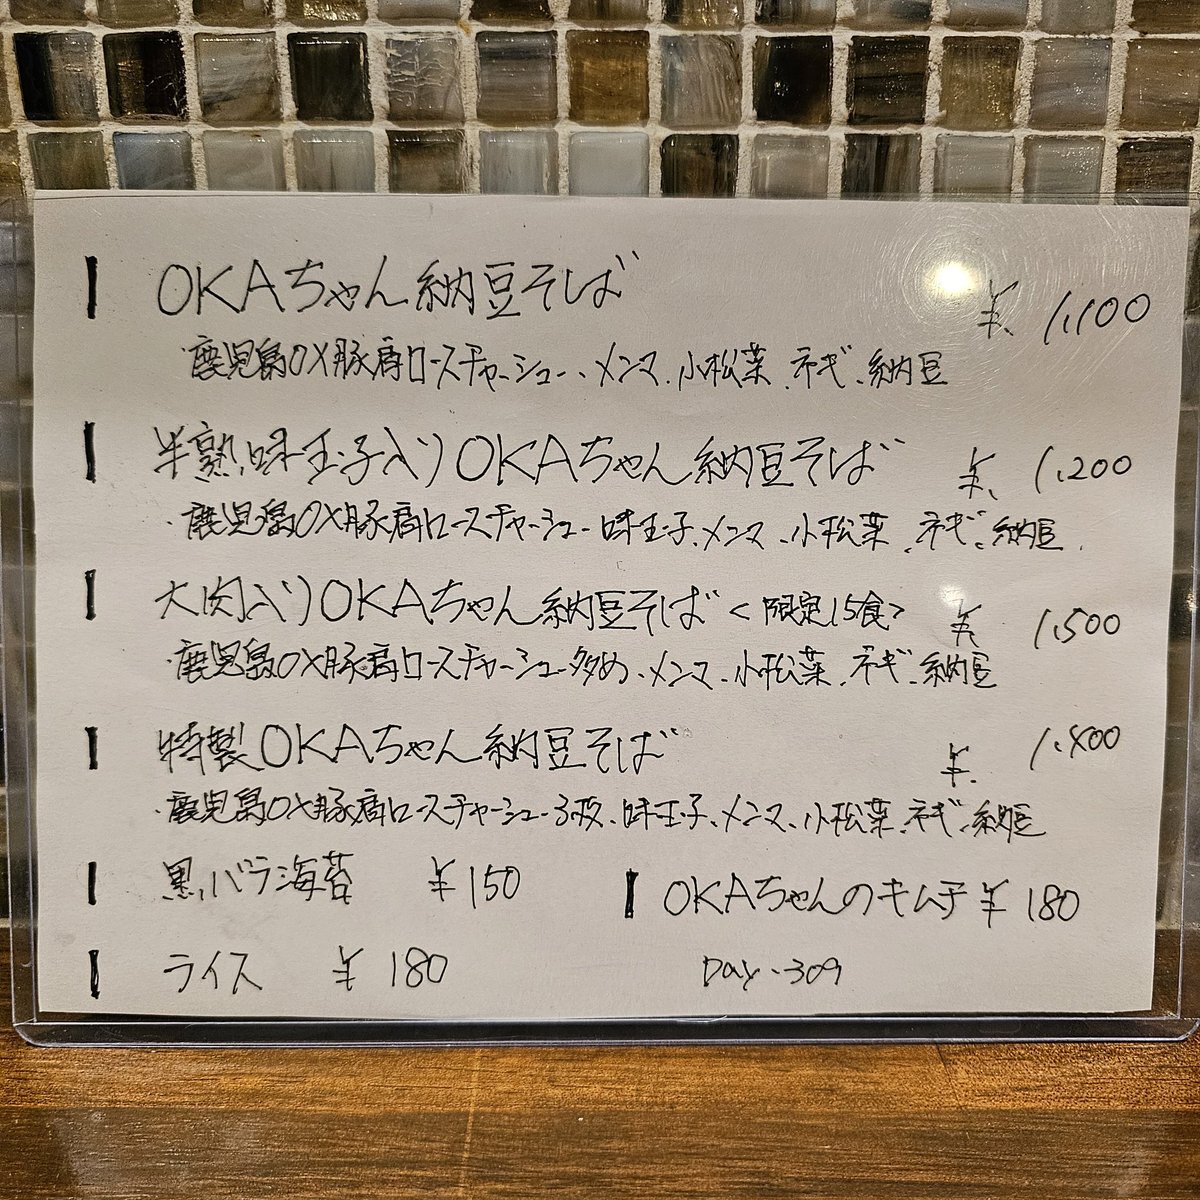 OKAちゃん納豆そば ¥1,100
・鹿児島OX豚肩ロースチャーシュー、メンマ、小松菜、ネギ、納豆
半熟味玉子入りOKAちゃん納豆そば ¥1,200
・鹿児島OX豚肩ロースチャーシュー味玉子、メンマ、小松菜、ネギ、納豆
大肉入りOKAちゃん納豆そば<限定15食> ¥1,500
・鹿児島OX豚肩ロースチャーシュー多め、メンマ、小松菜、ネギ、納豆
特製OKAちゃん納豆そば ¥1,400
・鹿児島OX豚肩ロースチャーシュー3枚、味玉子、メンマ、小松菜、ネギ、納豆
黒バラ海苔 ¥150 OKAちゃんのキムチ ¥180
ライス ¥180 Day.309